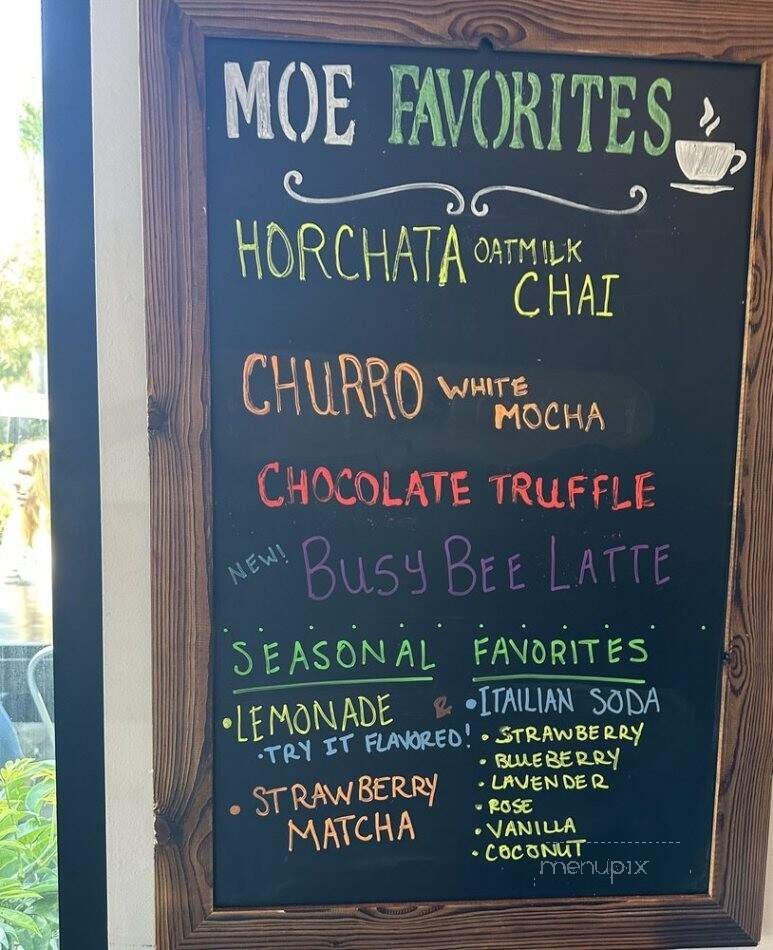 MOE FAVORITES
HORCHATA OATMILK
CHAI
CHURRO WHITE
MOCHA
CHOCOLATE TRUFFLE
NEW! BUSY BEE LATTE
SEASONAL FAVORITES
•LEMONADE & •ITAILIAN SODA
•TRY IT FLAVORED!
• STRAWBERRY
• BLUEBERRY
• LAVENDER
• ROSE
• VANILLA
• COCONUT
• STRAWBERRY
MATCHA
menupix